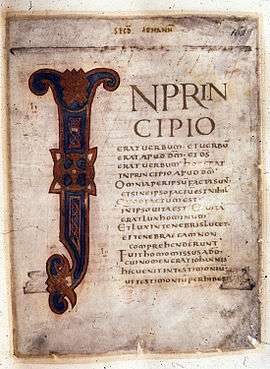 SECD IOHANN
INPRIN
CIPIO
ERAT VERBUM · ET UERBU
ERAT APUD DM · ET DS
ERAT UERBUM · hOC ERAT
IN PRINCIPIO APUD DM
OMNIA PER IPSU FACTA SUN
ET SINE IPSO FACTU EST NIHIL
QUOD FACTUM EST
IN IPSO UITA EST · ET UITA
ERAT LUX HOMINUM
ET LUX IN TENEBRIS LUCET
ET TENEBRAE EAM NON
COMPREHENDERUNT
FUIT HOMO MISSUS A DO
CUI NOMEN ERAT IOHANNIS
HIC UENIT IN TESTIMONIU
UT TESTIMONIU PERHIBE